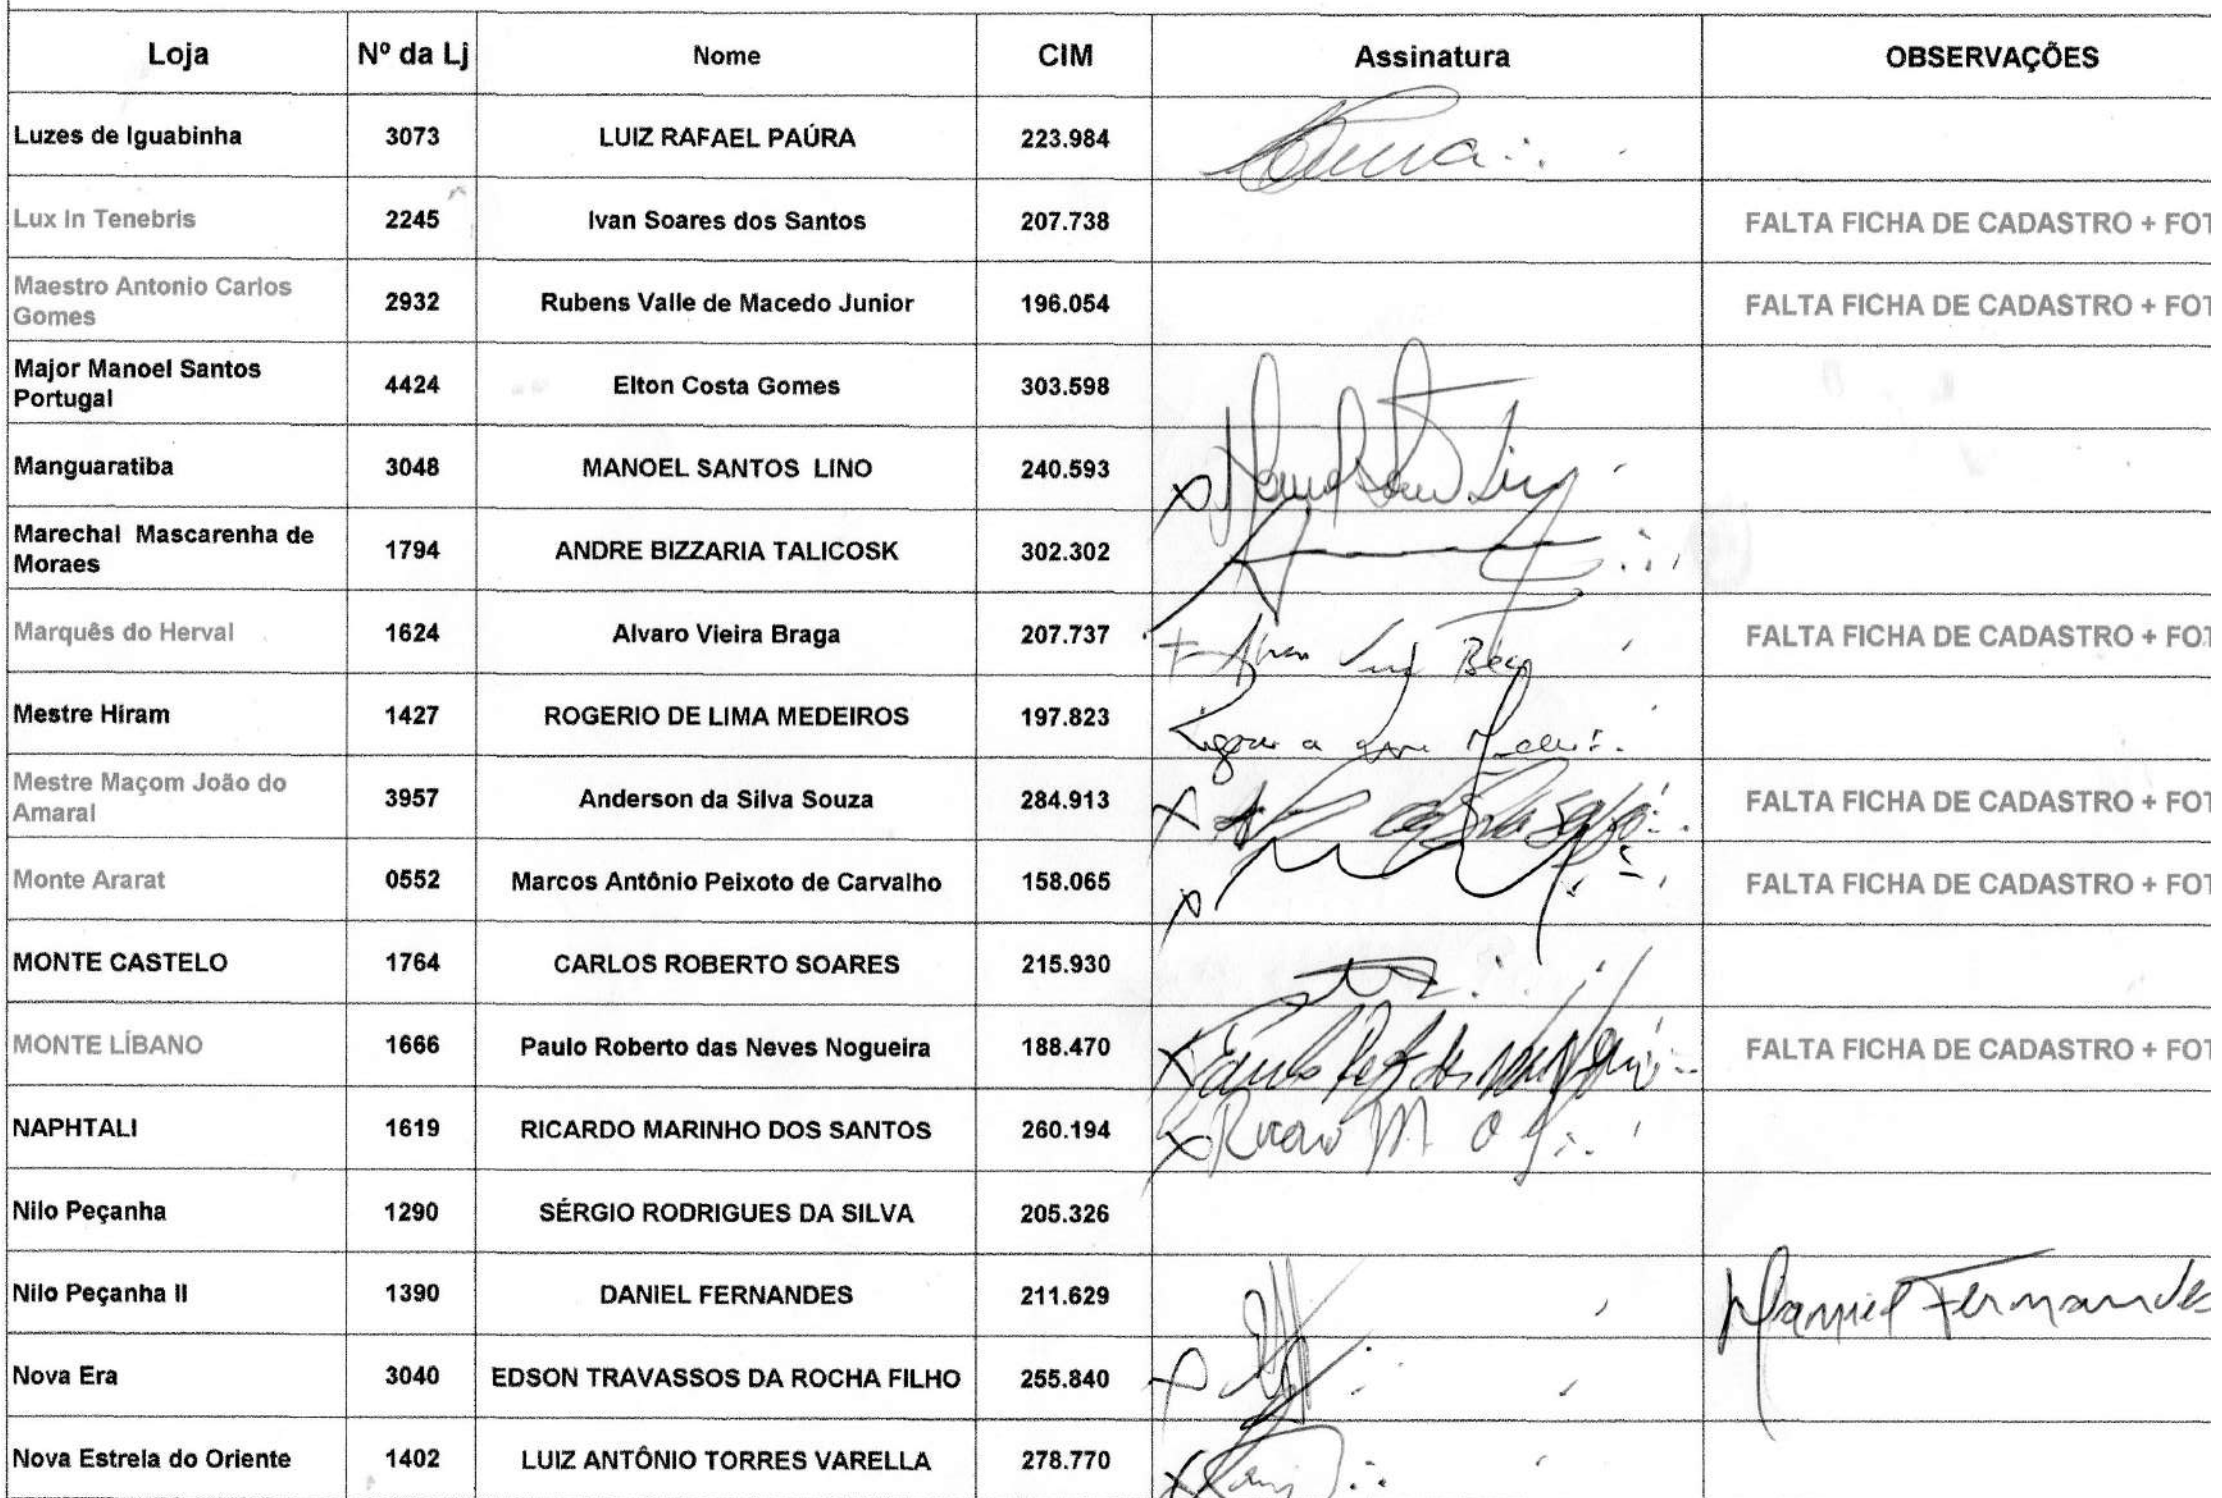 Loja Nº da Lj Nome CIM Assinatura OBSERVAÇÕES
Luzes de Iguabinha 3073 LUIZ RAFAEL PAÚRA 223.984
Lux In Tenebris 2245 Ivan Soares dos Santos 207.738 FALTA FICHA DE CADASTRO + FOT
Maestro Antonio Carlos
Gomes 2932 Rubens Valle de Macedo Junior 196.054 FALTA FICHA DE CADASTRO + FOT
Major Manoel Santos
Portugal 4424 Elton Costa Gomes 303.598
Manguaratiba 3048 MANOEL SANTOS LINO 240.593
Marechal Mascarenha de
Moraes 1794 ANDRE BIZZARIA TALICOSK 302.302
Marquês do Herval 1624 Alvaro Vieira Braga 207.737 FALTA FICHA DE CADASTRO + FOT
Mestre Hiram 1427 ROGERIO DE LIMA MEDEIROS 197.823
Mestre Maçom João do
Amaral 3957 Anderson da Silva Souza 284.913 FALTA FICHA DE CADASTRO + FOT
Monte Ararat 0552 Marcos Antônio Peixoto de Carvalho 158.065 FALTA FICHA DE CADASTRO + FOT
MONTE CASTELO 1764 CARLOS ROBERTO SOARES 215.930
MONTE LÍBANO 1666 Paulo Roberto das Neves Nogueira 188.470 FALTA FICHA DE CADASTRO + FOT
NAPHTALI 1619 RICARDO MARINHO DOS SANTOS 260.194
Nilo Peçanha 1290 SÉRGIO RODRIGUES DA SILVA 205.326
Nilo Peçanha II 1390 DANIEL FERNANDES 211.629 Daniel Fernandes
Nova Era 3040 EDSON TRAVASSOS DA ROCHA FILHO 255.840
Nova Estrela do Oriente 1402 LUIZ ANTÔNIO TORRES VARELLA 278.770